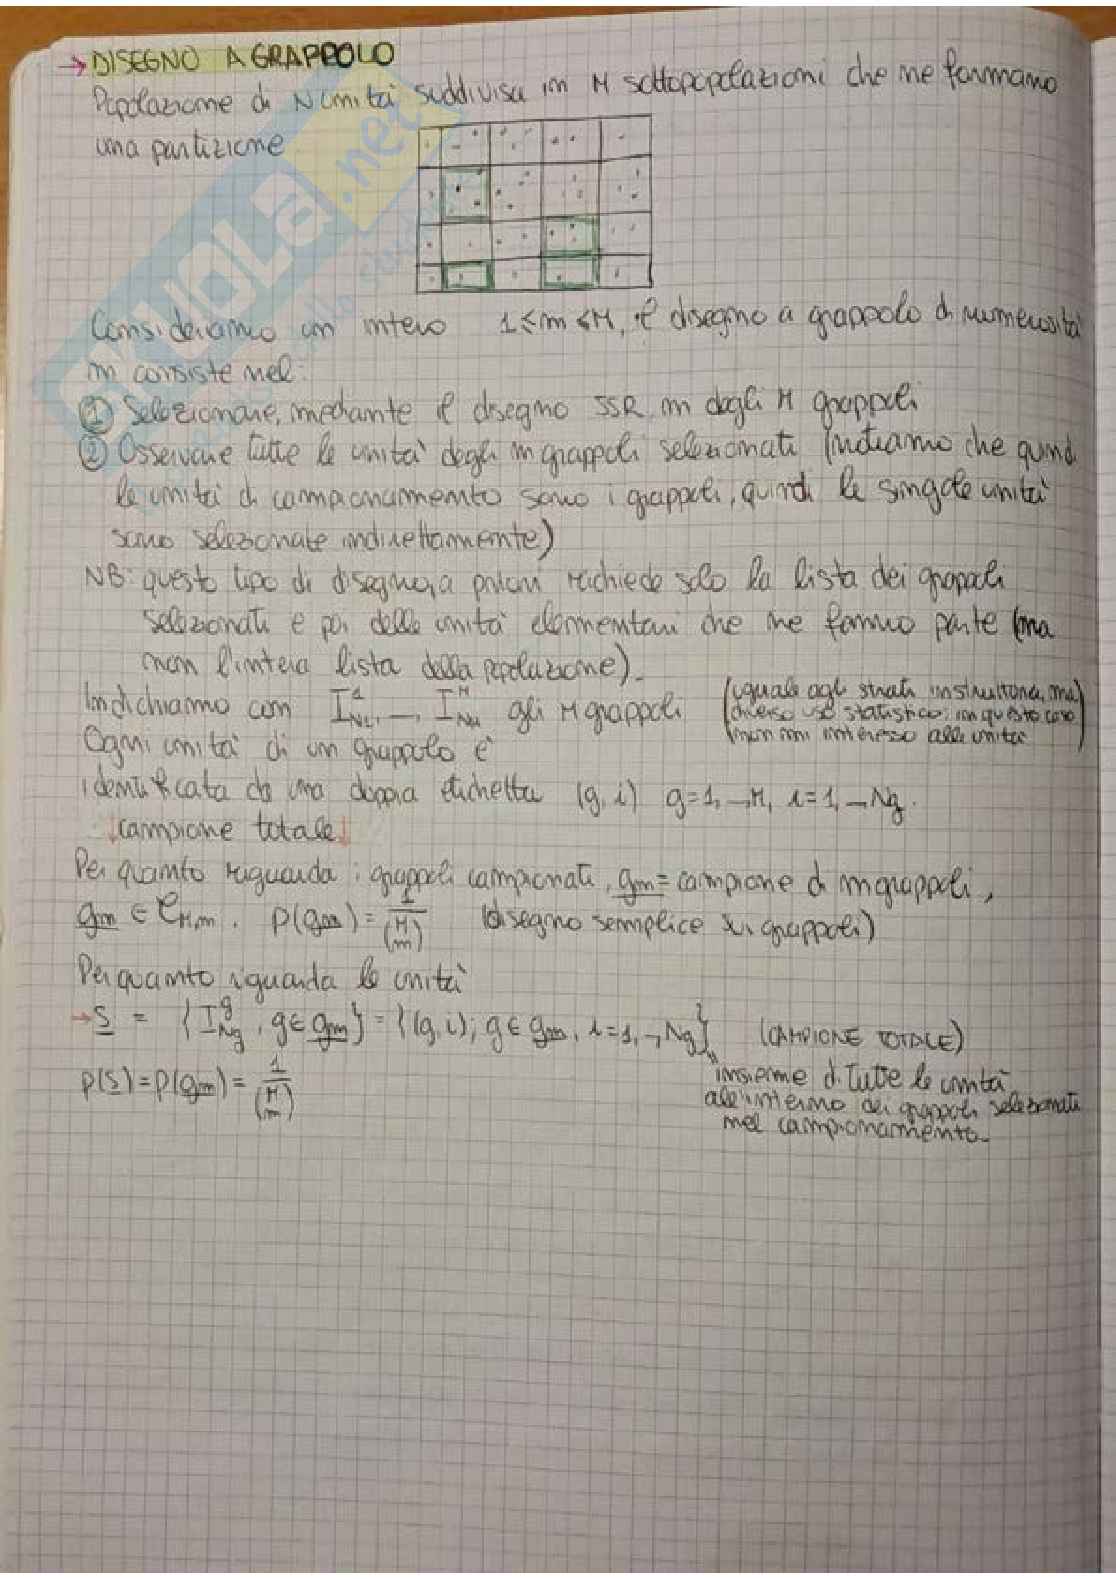 → DISEGNO A GRAPPOLO
Popolazione di N unità suddivisa in M sottopopolazioni che ne formano
una partizione
Consideriamo un intero 1≤m≤M, il disegno a grappolo di numerosità
m consiste nel:
① Selezionare, mediante il disegno SSR m degli M grappoli
② Osservare tutte le unità degli m grappoli selezionati (notiamo che quindi
le unità di campionamento sono i grappoli, quindi le singole unità
sono selezionate indirettamente)
NB: questo tipo di disegno, a priori richiede solo la lista dei grappoli
selezionati e poi delle unità elementari che ne fanno parte (ma
non l'intera lista della popolazione).
Indichiamo con I¹_N1, –, I^M_NM gli M grappoli
(uguale agli strati in struttura, ma
diverso uso statistico: in questo caso
non mi interesso alle unità)
Ogni unità di un grappolo è
identificata da una doppia etichetta (g, i) g=1, –, M, i=1, – Ng.
↓campione totale↓
Per quanto riguarda i grappoli campionati, gm = campione di m grappoli,
gm ∈ C_M,m. p(gm) = 1/(M m) (disegno semplice sui grappoli)
Per quanto riguarda le unità
→ S = {I^g_Ng, g∈gm} = {(g, i); g∈gm, i=1, –, Ng} (CAMPIONE TOTALE)
p(S) = p(gm) = 1/(M m)
insieme di tutte le unità
all'interno dei grappoli selezionati
nel campionamento.
SKUOLA.net